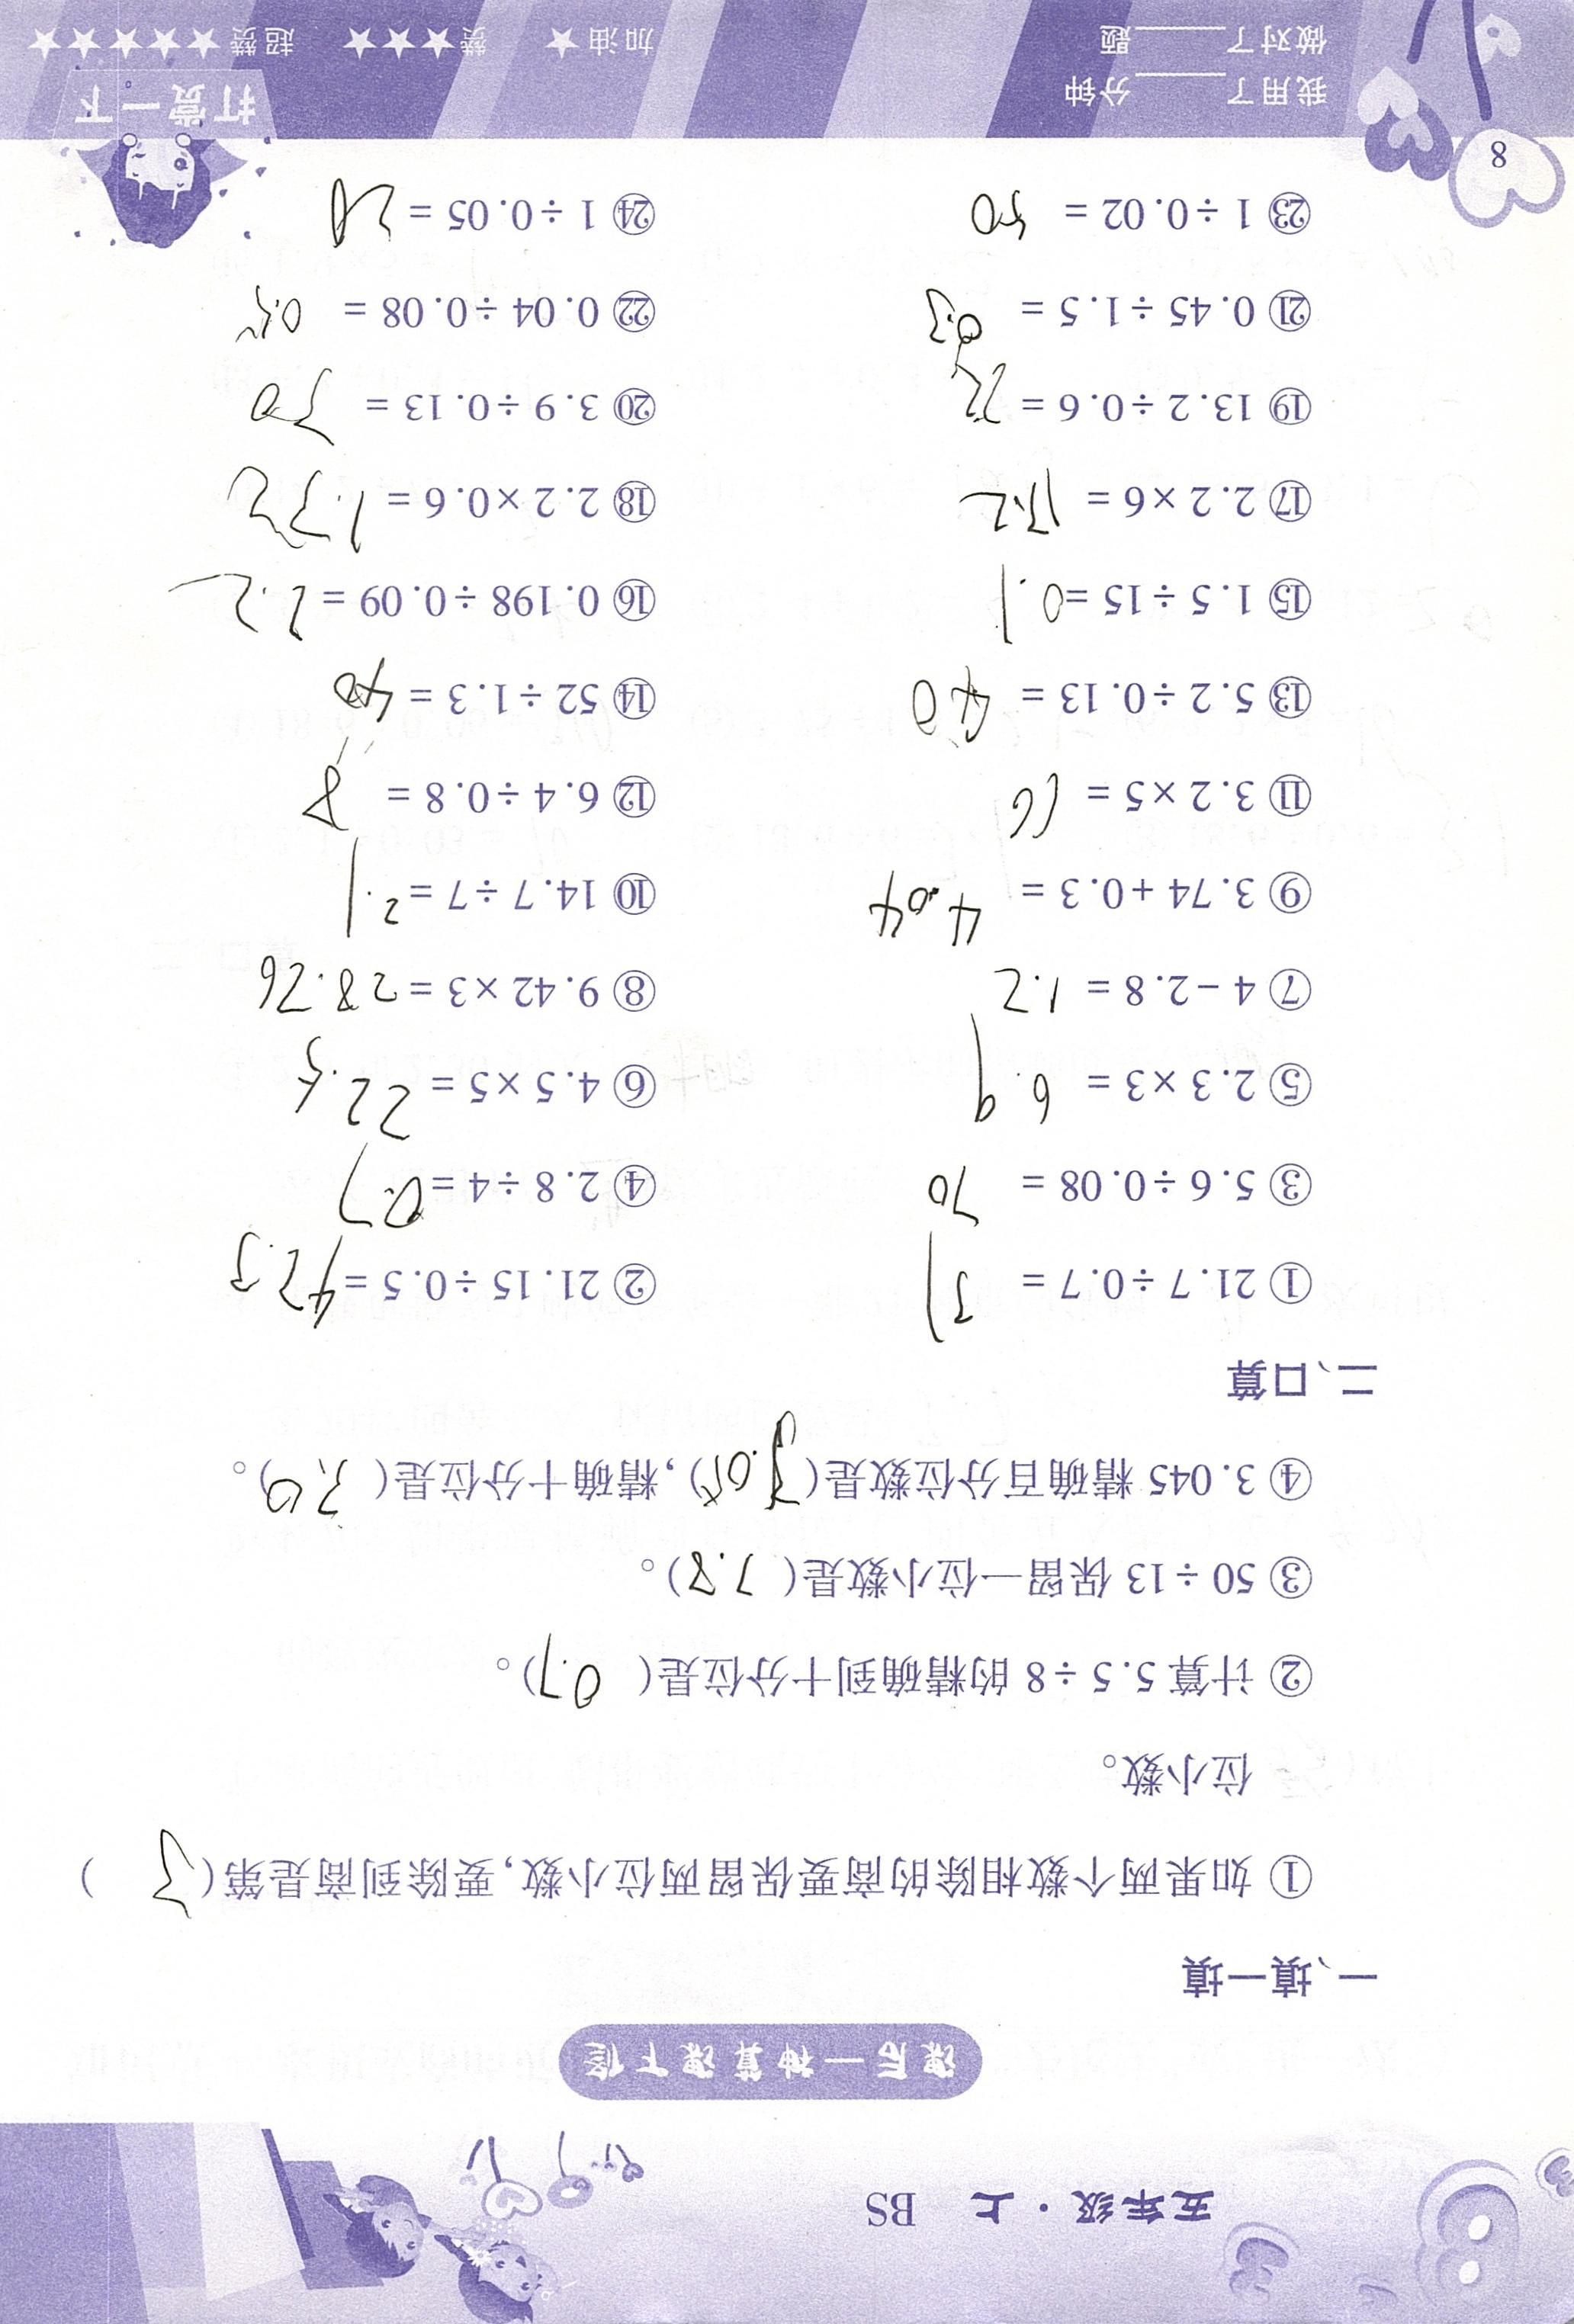 五年级·上 BS
课后一神算课下练
一、填一填
① 如果两个数相除的商要保留两位小数,要除到商是第( 3 )
位小数。
② 计算 5.5÷8 的精确到十分位是( 0.7 )。
③ 50÷13 保留一位小数是( 7.8 )。
④ 3.045 精确百分位数是( 3.05 ),精确十分位是( 3.0 )。
二、口算
① 21.7÷0.7= 31 ② 21.15÷0.5= 42.3
③ 5.6÷0.08= 70 ④ 2.8÷4= 0.7
⑤ 2.3×3= 6.9 ⑥ 4.5×5= 22.5
⑦ 4-2.8= 1.2 ⑧ 9.42×3= 28.26
⑨ 3.74+0.3= 4.04 ⑩ 14.7÷7= 2.1
⑪ 3.2×5= 16 ⑫ 6.4÷0.8= 8
⑬ 5.2÷0.13= 40 ⑭ 52÷1.3= 40
⑮ 1.5÷15= 0.1 ⑯ 0.198÷0.09= 2.2
⑰ 2.2×6= 13.2 ⑱ 2.2×0.6= 1.32
⑲ 13.2÷0.6= 22 ⑳ 3.9÷0.13= 30
㉑ 0.45÷1.5= 0.3 ㉒ 0.04÷0.08= 0.5
㉓ 1÷0.02= 50 ㉔ 1÷0.05= 20
8
我用了____分钟
做对了____题
打赏一下
加油★ 赞★★★ 超赞★★★★★